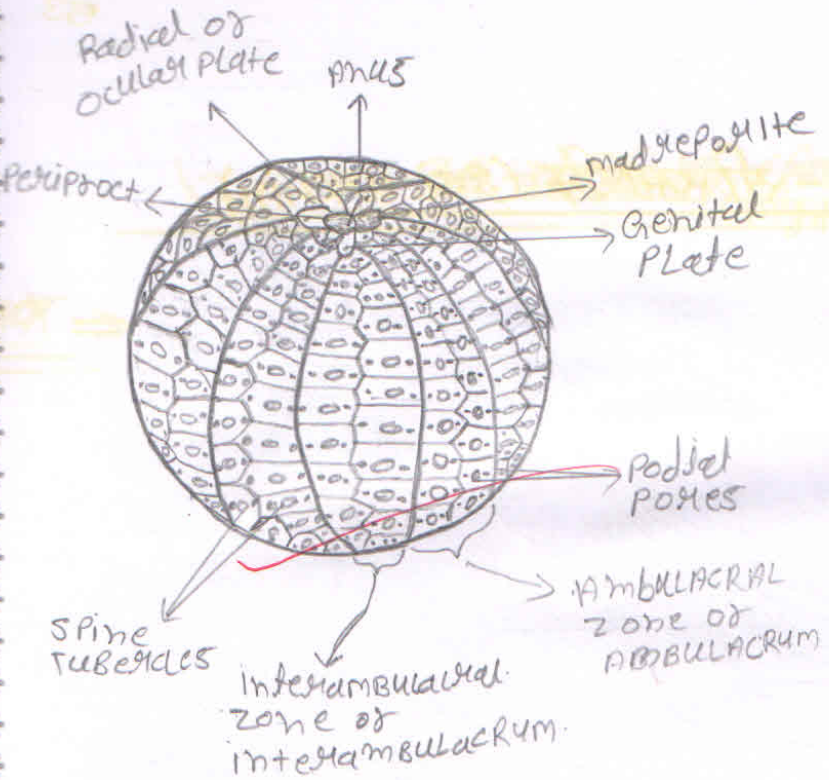 Radial or
Ocular Plate
Anus
Periproct
Madreporite
Genital
Plate
Podial
Pores
Ambulacral
zone or
Ambulacrum
Spine
Tubercles
Interambulacral
zone or
interambulacrum.